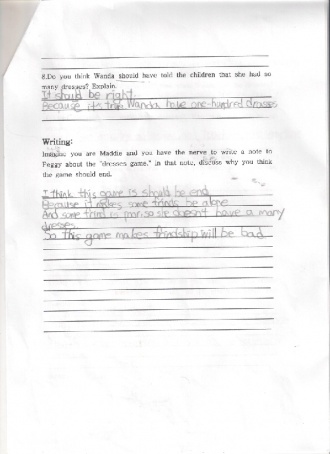 8.Do you think Wanda should have told the children that she had so
many dresses? Explain.
It should be right.
Because it's true Wanda have one-hundred dresses
Writing:
Imagine you are Maddie and you have the nerve to write a note to
Peggy about the "dresses game." in that note, discuss why you think
the game should end.
I think this game is should be end
Because it makes some frinds be alone
And some frind is so she doesn't have a many
dresses
So this game makes frindship will be bad